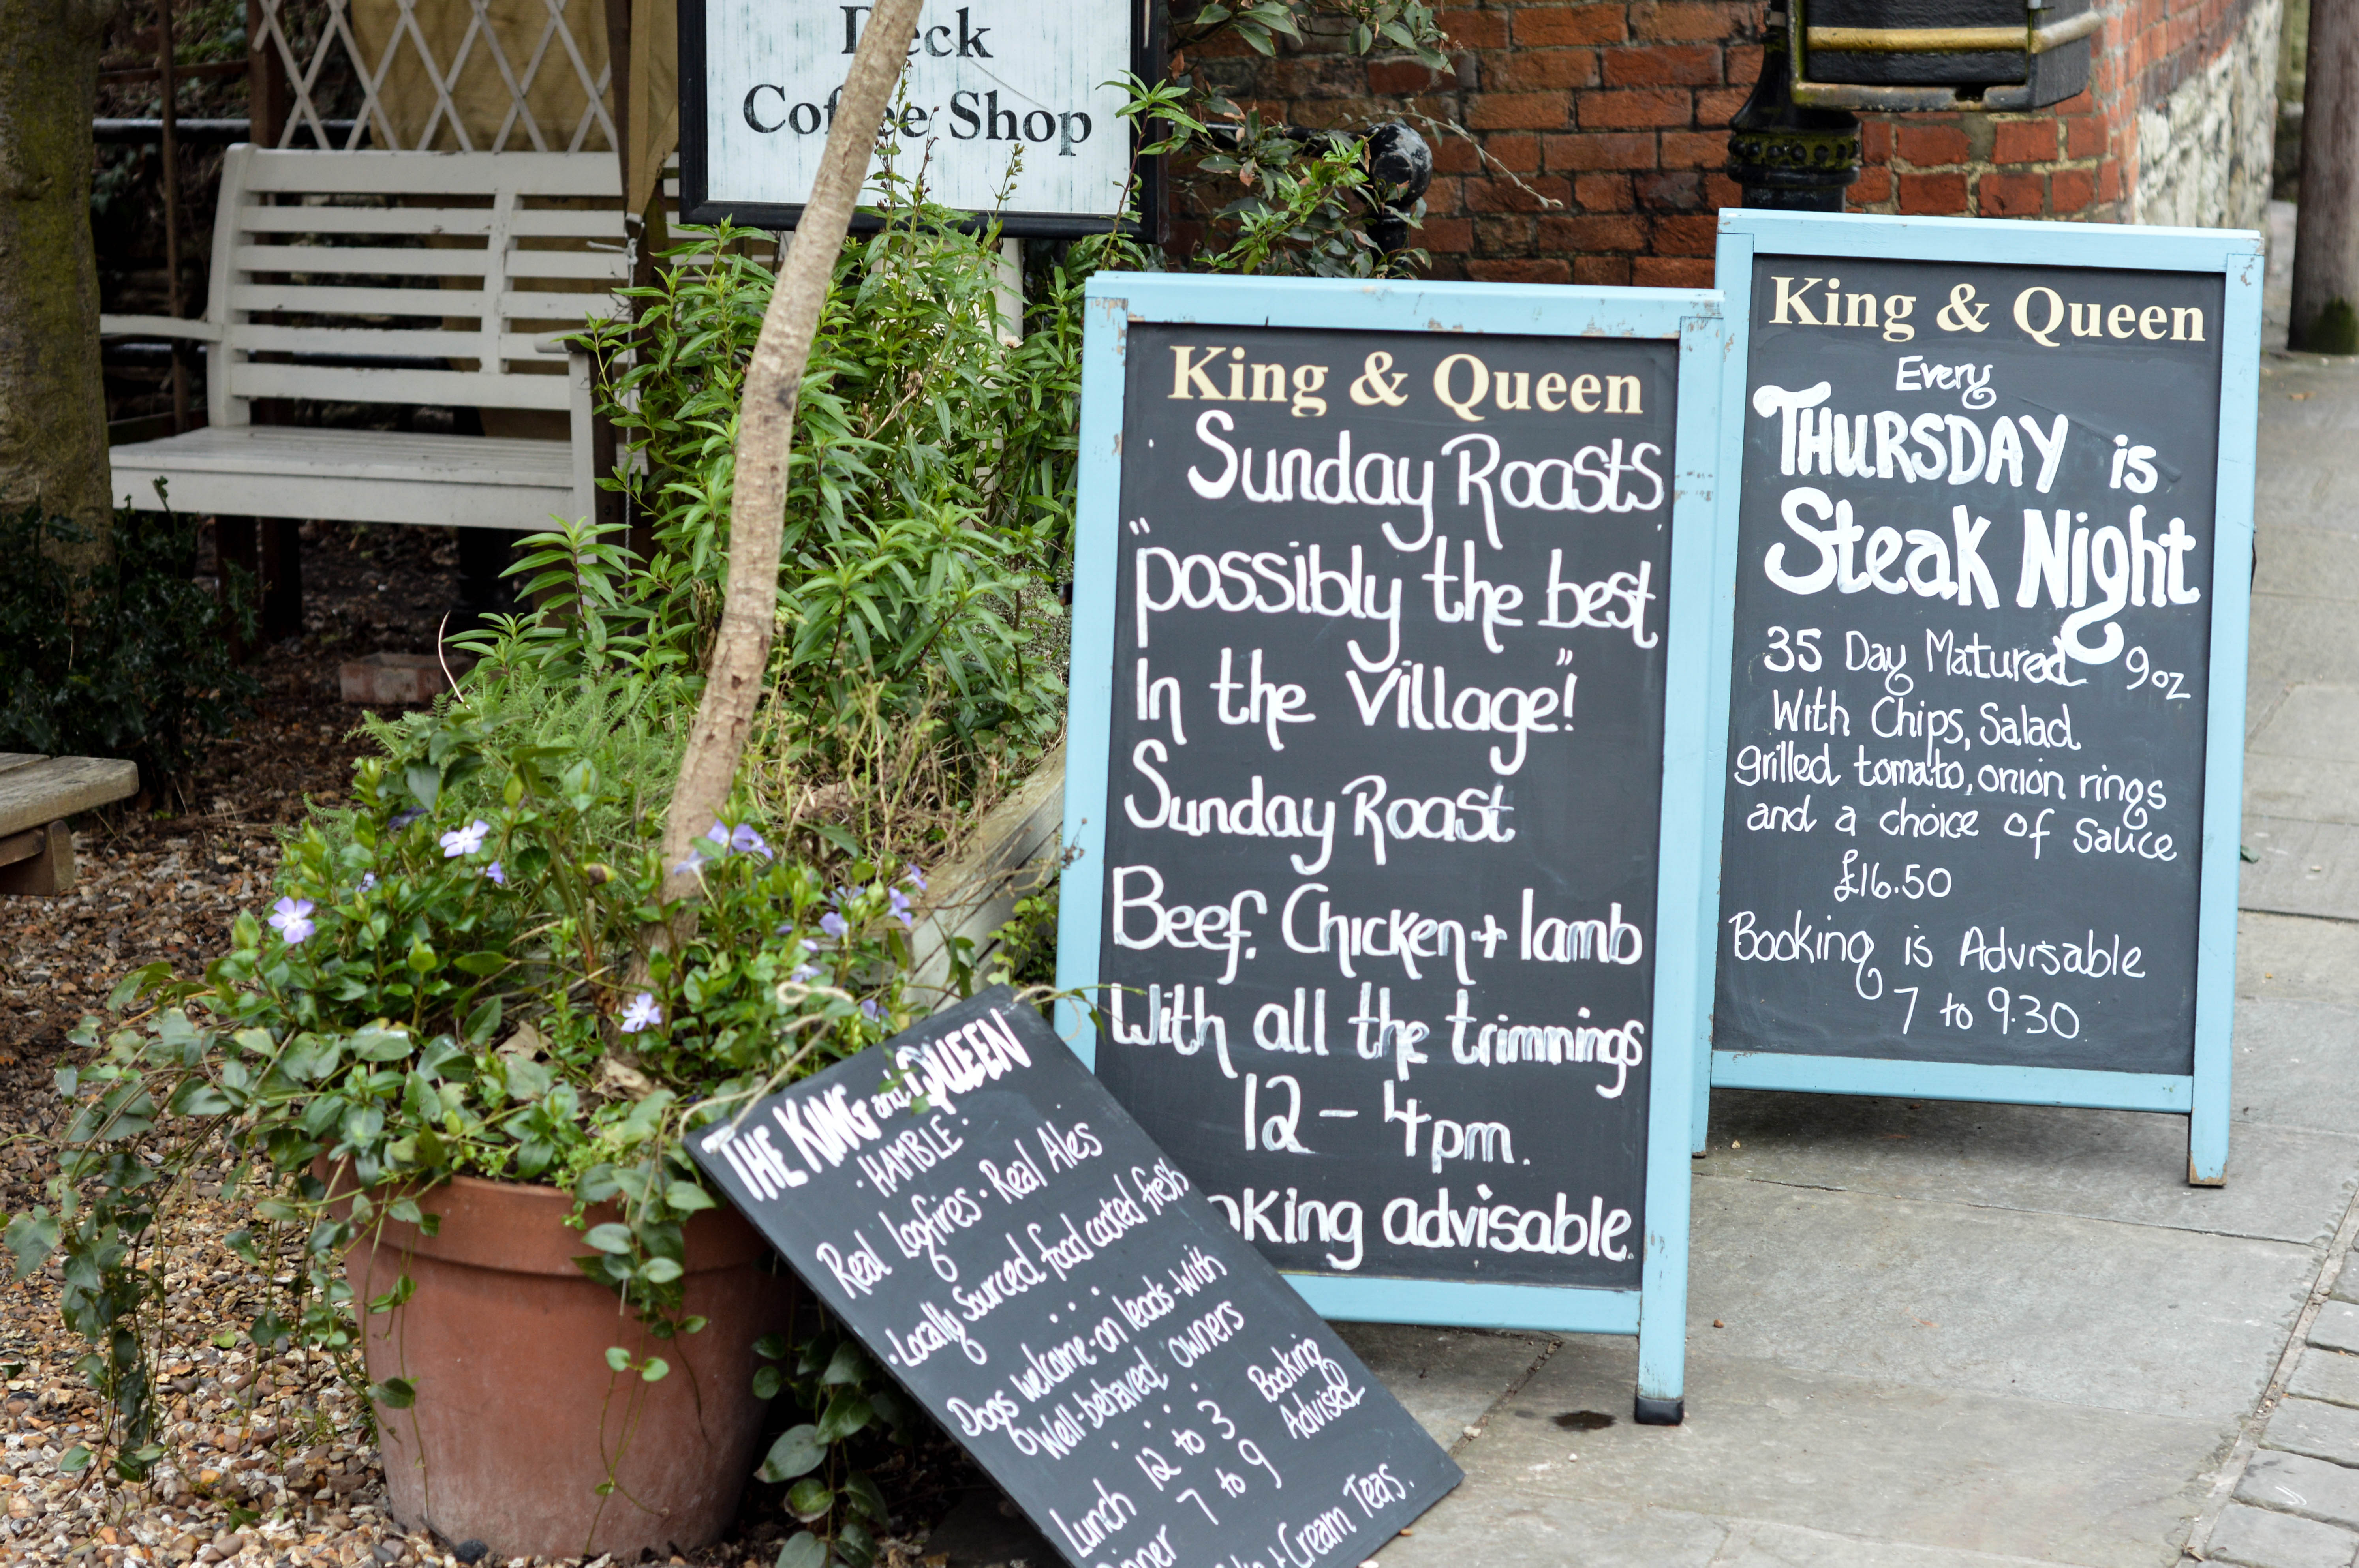 Deck
Coffee Shop
King & Queen
Sunday Roasts
"possibly the best
In the village"!
Sunday Roast
Beef, Chicken + lamb
With all the trimmings
12 - 4pm.
advisable.
King & Queen
Every
THURSDAY is
Steak Night
35 Day Matured 9oz
With Chips, Salad
grilled tomato, onion rings
and a choice of sauce
£16.50
Booking is Advisable
7 to 9.30
THE KING and QUEEN
· HAMBLE ·
Real Logfires · Real Ales
· Locally Sourced food cooked fresh
Dogs welcome - on leads - With
Well-behaved owners
Lunch 12 to 3 Booking
7 to 9 Advised
+ Cream Teas.